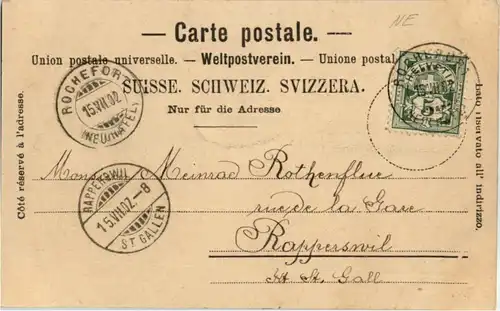 NE
— Carte postale. —
Union postale universelle. — Weltpostverein. — Unione postale
SUISSE. SCHWEIZ. SVIZZERA.
Nur für die Adresse
Côté réservé à l'adresse.
Lato riservato all' indirizzo.
ROCHEFORT
15.VII.02
(NEUCHÂTEL)
ROCHEFORT
HELVETIA
15.VII.02
5
RAPPERSWIL
15.VII.02.-8
ST GALLEN
Monsieur Meinrad Rothenflue
rue de la Gare
Rapperswil
Kt St. Gall